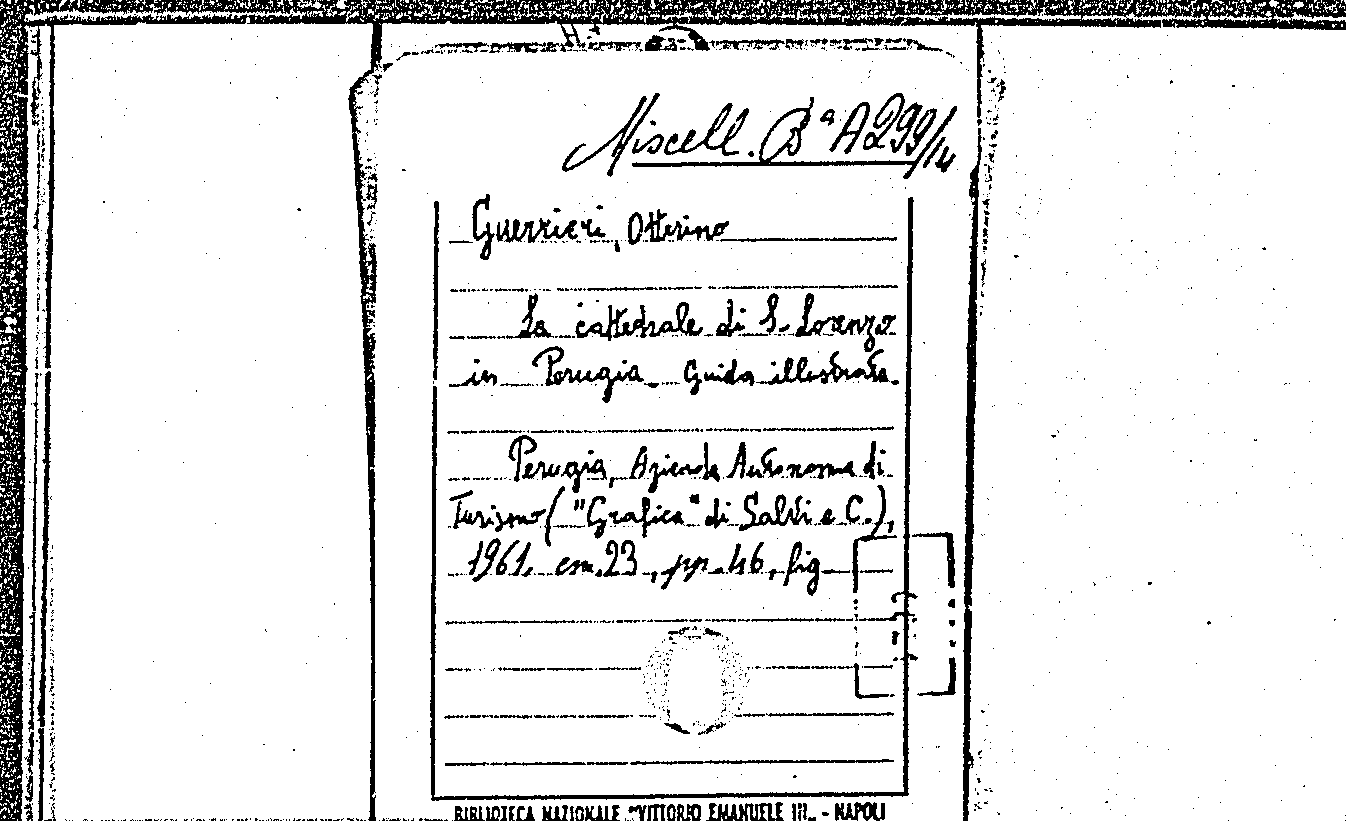 Miscell. Bª A299/14
Guerrieri, Otterino
La cattedrale di S. Lorenzo
in Perugia. Guida illustrata.
Perugia, Azienda Autonoma di
Turismo ("Grafica" di Salvi e C.),
1961, cm. 23, pp. 46, fig.
BIBLIOTECA NAZIONALE "VITTORIO EMANUELE III„ - NAPOLI